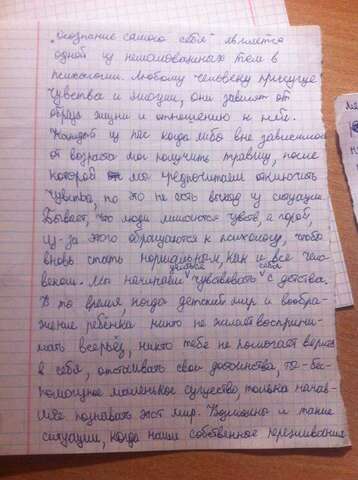 „Осознание самого себя" является
одной из немаловажных тем в
психологии. Любому человеку присущие
чувства и эмоции, они зависят от
образа жизни и отношению к себе.
Каждый из нас когда либо вне зависимости
от возраста мог получить травму, после
которой мы предпочитаем отключить
чувства, но это не есть выход из ситуации.
Бывает, что люди лишаются чувств, а порой,
из-за этого обращаются к психологу, чтобы
вновь стать нормальным, как и все чело-
веком. Мы начинаем учиться чувствовать себя с детства.
В то время, когда детский мир и вообра-
жение ребёнка никто не желает восприни-
мать всерьёз, никто тебе не помогает верить
в себя, отстаивать свои достоинства, ты - бес-
помощное маленькое существо, только начав-
шее познавать этот мир. Возможны и такие
ситуации, когда наши собственные переживания